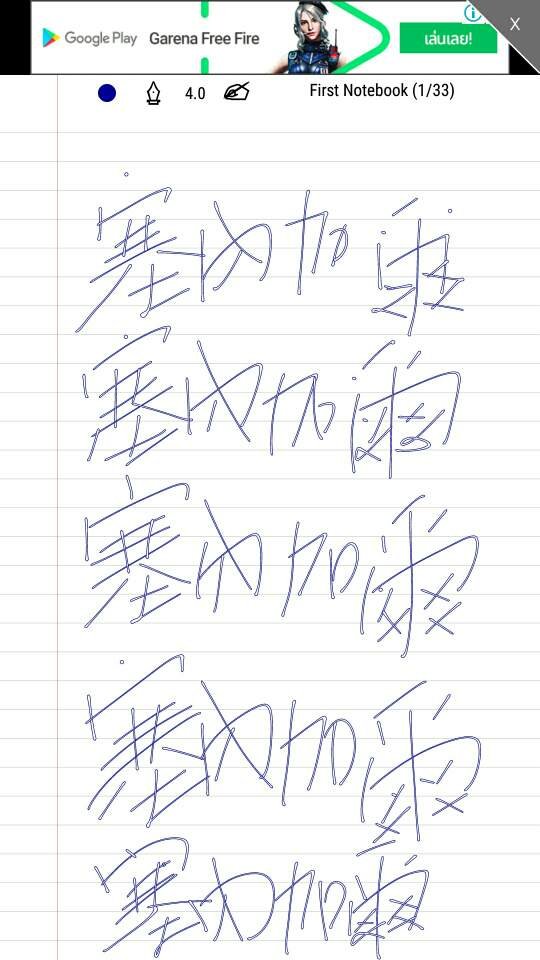 Google Play Garena Free Fire เล่นเลย! X
4.0 First Notebook (1/33)
塞内加爾
塞内加爾
塞内加爾
塞内加爾
塞内加爾